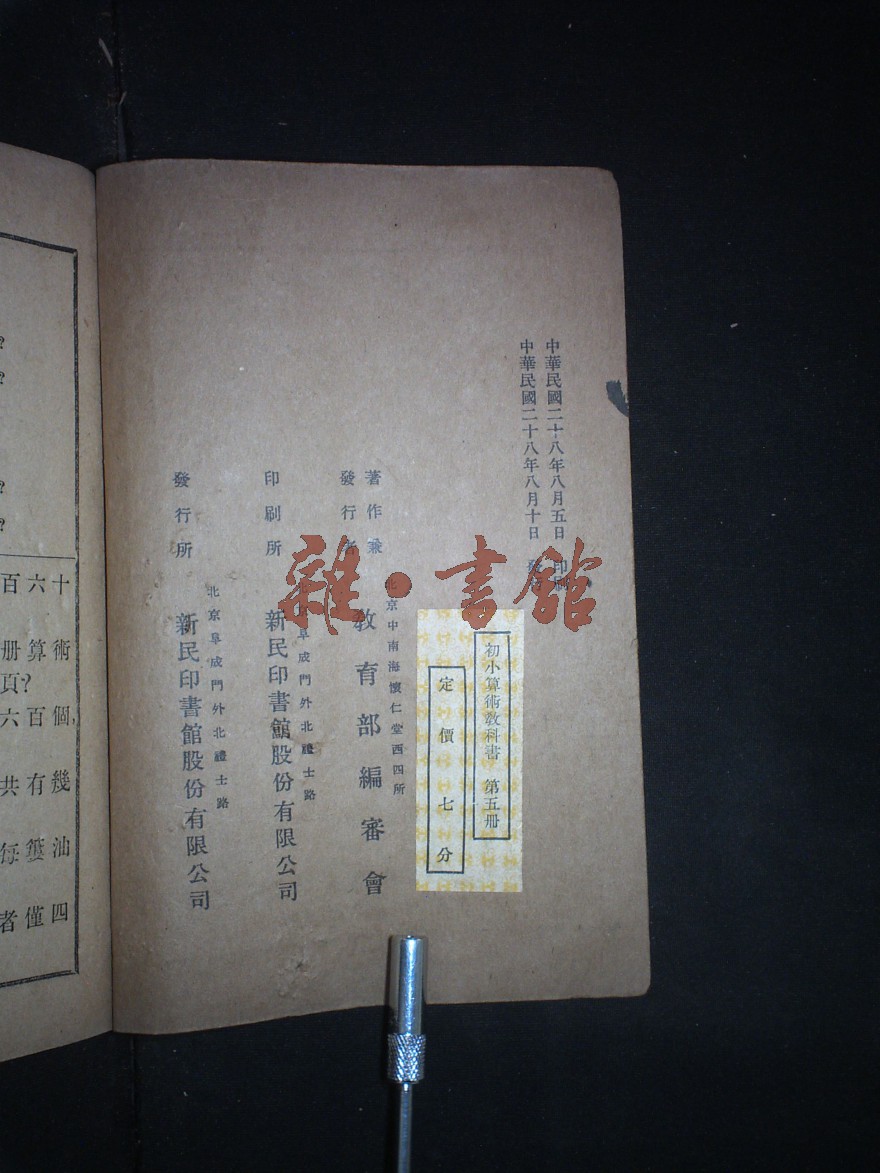 中華民國二十八年八月五日 印刷
中華民國二十八年八月十日
初小算術教科書 第五册
定價七分
著作兼
發行者
北京中南海懷仁堂西四所
教育部編審會
印刷所
北京阜成門外北禮士路
新民印書館股份有限公司
發行所
北京阜成門外北禮士路
新民印書館股份有限公司
雜·書館
十六百
術算册
頁?
個,百六
幾有共
油簍每
四僅者
?
?
?
?